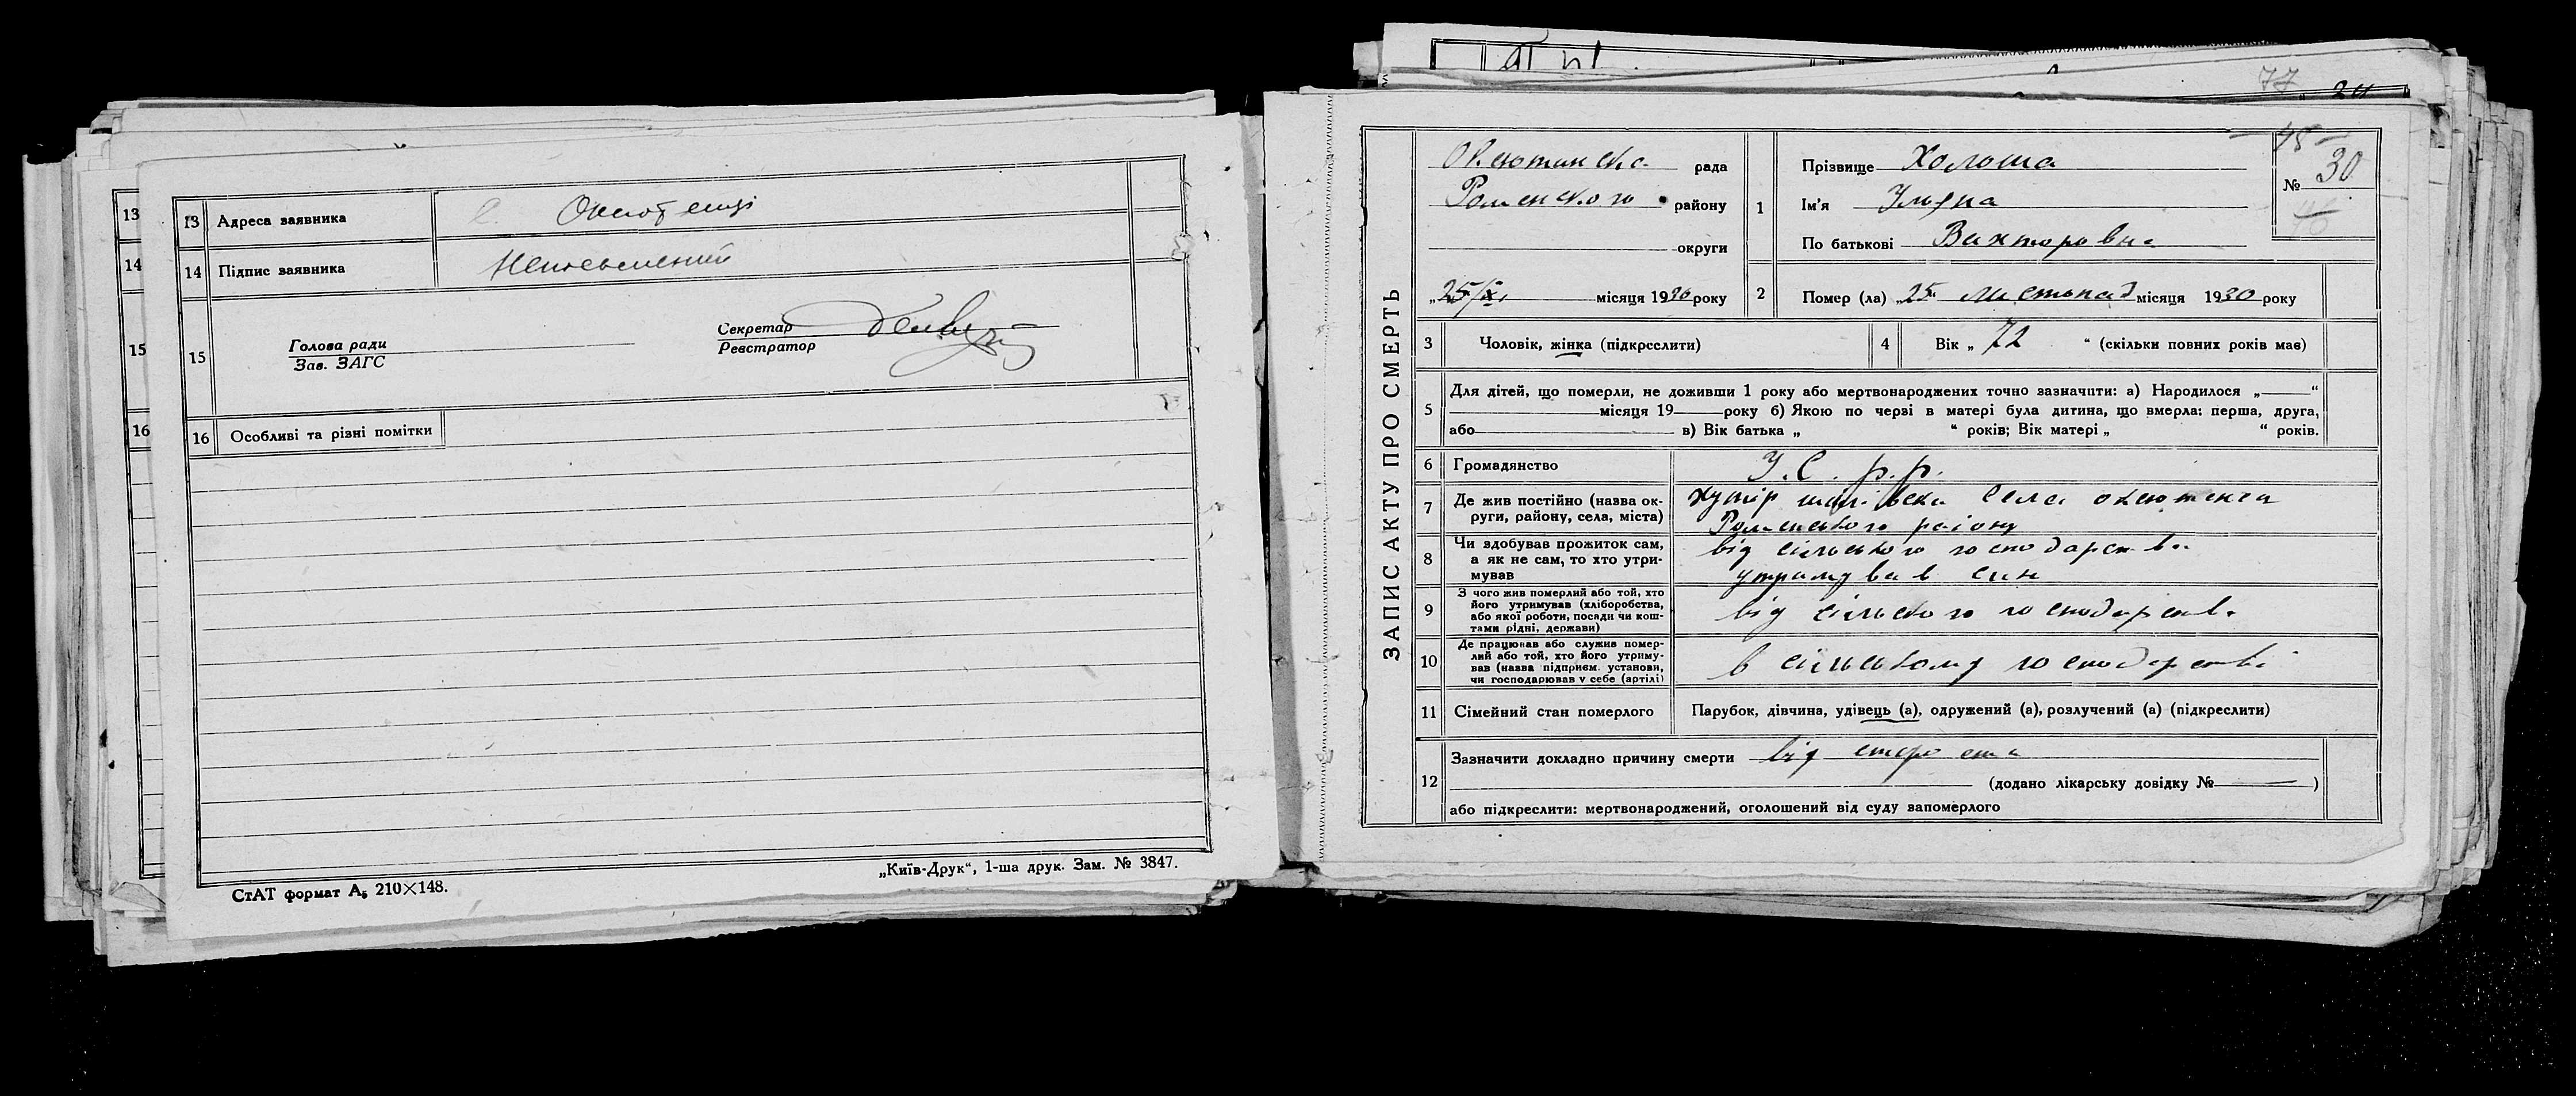 13 Адреса заявника
14 Підпис заявника Неписьменний
15 Голова ради
Зав. ЗАГС
Секретар
Реєстратор
16 Особливі та різні помітки
СтАТ формат А5 210×148.
„Київ-Друк“, 1-ша друк. Зам. № 3847.
13
14
15
16
77
ЗАПИС АКТУ ПРО СМЕРТЬ
рада
Роменского району
округи
„25/XI місяця 1930 року
1 Прізвище Холоша
Ім'я
По батькові
45
№ 30
2 Помер (ла) „25 листопад місяця 1930 року
3 Чоловік, жінка (підкреслити)
4 Вік „ 72 “ (скільки повних років має)
5 Для дітей, що померли, не доживши 1 року або мертвонароджених точно зазначити: а) Народилося „ “
місяця 19 року б) Якою по черзі в матері була дитина, що вмерла: перша, друга,
або в) Вік батька „ “ років; Вік матері „ “ років.
6 Громадянство У.С.р.р.
7 Де жив постійно (назва округи, району, села, міста) хутір села
Роменського району
8 Чи здобував прожиток сам, а як не сам, то хто утримував
від сільського господарства
утримував син
9 З чого жив померлий або той, хто його утримував (хліборобства, або якої роботи, посади чи коштами рідні, держави)
від сільского господарства
10 Де працював або служив померлий або той, хто його утримував (назва підприєм. установи, чи господарював у себе (артілі)
в сільському господарстві
11 Сімейний стан померлого Парубок, дівчина, удівець (а), одружений (а), розлучений (а) (підкреслити)
12 Зазначити докладно причину смерти від
(додано лікарську довідку № )
або підкреслити: мертвонароджений, оголошений від суду запомерлого